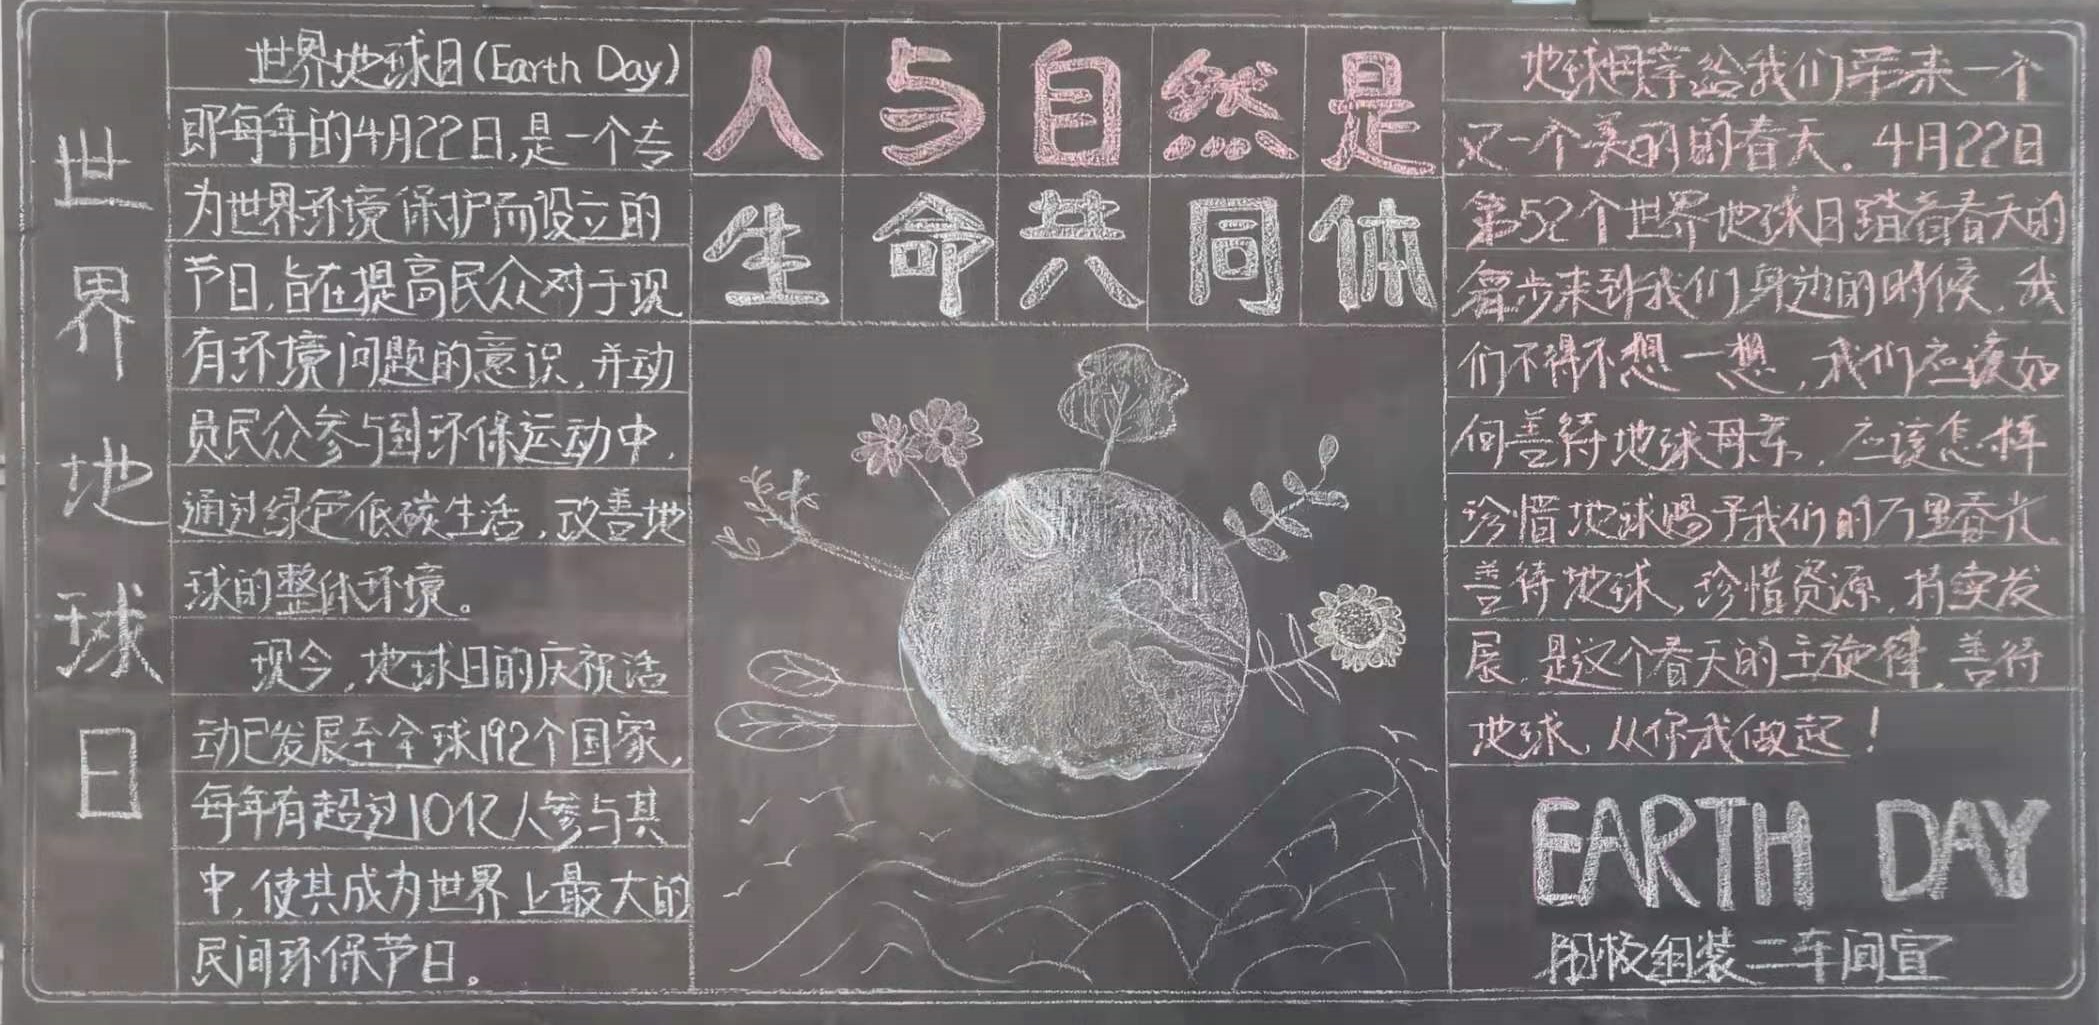 世界地球日
世界地球日(Earth Day)
即每年的4月22日,是一个专
为世界环境保护而设立的
节日,旨在提高民众对于现
有环境问题的意识,并动
员民众参与到环保运动中,
通过绿色低碳生活,改善地
球的整体环境。
现今,地球日的庆祝活
动已发展至全球192个国家,
每年有超过10亿人参与其
中,使其成为世界上最大的
民间环保节日。
人与自然是
生命共同体
地球母亲给我们带来一个
又一个美丽的春天。4月22日
第52个世界地球日踏着春天的
舞步来到我们身边的时候,我
们不得不想一想,我们应该如
何善待地球母亲,应该怎样
珍惜地球赐予我们的万里春光,
善待地球,珍惜资源,持续发
展,是这个春天的主旋律,善待
地球,从你我做起!
EARTH DAY
阴极组装二车间宣